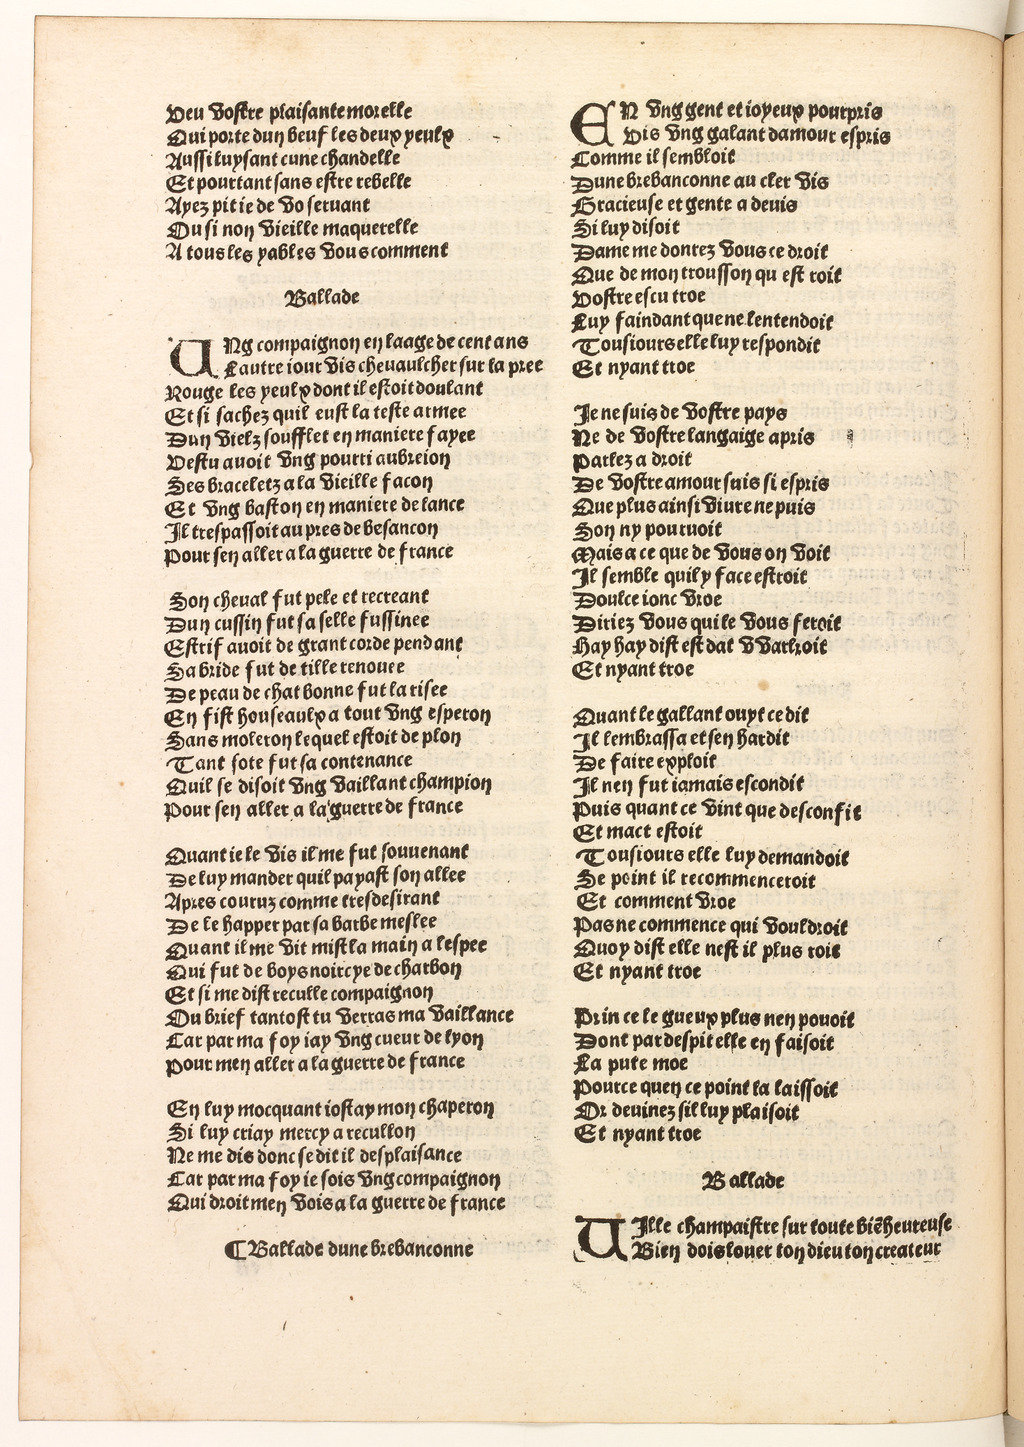 Veu vostre plaisante morelle
Qui porte dun beuf les deux yeulx
Aussi luysant cune chandelle
Et pourtant sans estre rebelle
Ayez pitie de vo servant
Ou si non vieille maquerelle
A tous les yables vous comment
Ballade
UNg compaignon en laage de cent ans
Lautre iour vis chevaulcher sur la pree
Rouge les yeulx dont il estoit doulant
Et si sachez quil eust la teste armee
Dun vielz soufflet en maniere fayee
Vestu auoit vng pourri aubreion
Ses braceletz a la vieille facon
Et vng baston en maniere de lance
Il trespassoit au pres de besancon
Pour sen aller a la guerre de france
Son cheval fut pele et recreant
Dun cussin fut sa selle fussinee
Estrif auoit de grant corde pendant
Sa bride fut de tille renouee
De peau de chat bonne fut la risee
En fist houseaulx a tout vng esperon
Sans moleron lequel estoit de plon
Tant sote fut sa contenance
Quil se disoit vng vaillant champion
Pour sen aller a la guerre de france
Quant ie le vis il me fut souuenant
De luy mander quil payast son allee
Apres couruz comme tresdesirant
De le happer par sa barbe meslee
Quant il me vit mist la main a lespee
Qui fut de boys noircye de charbon
Et si me dist reculle compaignon
Ou brief tantost tu verras ma vaillance
Car par ma foy iay vng cueur de lyon
Pour men aller a la guerre de france
En luy mocquant iostay mon chaperon
Si luy criay mercy a recullon
Ne me dis donc se dit il desplaisance
Car par ma foy ie sois vng compaignon
Qui droit men vois a la guerre de france
¶ Ballade dune brebanconne
EN vng gent et ioyeux pourpris
Vis vng galant damour espris
Comme il sembloit
Dune brebanconne au cler vis
Gracieuse et gente a deuis
Si luy disoit
Dame me donrez vous ce droit
Que de mon trousson qu est roit
Vostre escu troe
Luy faindant que ne lentendoit
Tousiours elle luy respondit
Et nyant troe
Je ne suis de vostre pays
Ne de vostre langaige apris
Parlez a droit
De vostre amour suis si espris
Que plus ainsi viure ne puis
Son ny pouruoit
Mais a ce que de vous on voit
Il semble quil y face estroit
Doulce ionc vroe
Diriez vous qui le vous feroit
Hay hay dist est dat vvarkoit
Et nyant troe
Quant le gallant ouyt ce dit
Il lembrassa et sen hardit
De faire exploit
Il nen fut iamais escondit
Puis quant ce vint que desconfit
Et mact estoit
Tousiours elle luy demandoit
Se point il recommenceroit
Et comment vroe
Pas ne commence qui vouldroit
Quoy dist elle nest il plus roit
Et nyant troe
Prin ce le gueux plus nen pouoit
Dont par despit elle en faisoit
La pute moe
Pource quen ce point la laissoit
Or deuinez sil luy plaisoit
Et nyant troe
Ballade
UIlle champaistre sur toute biēheureuse
Bien dois louer ton dieu ton createur